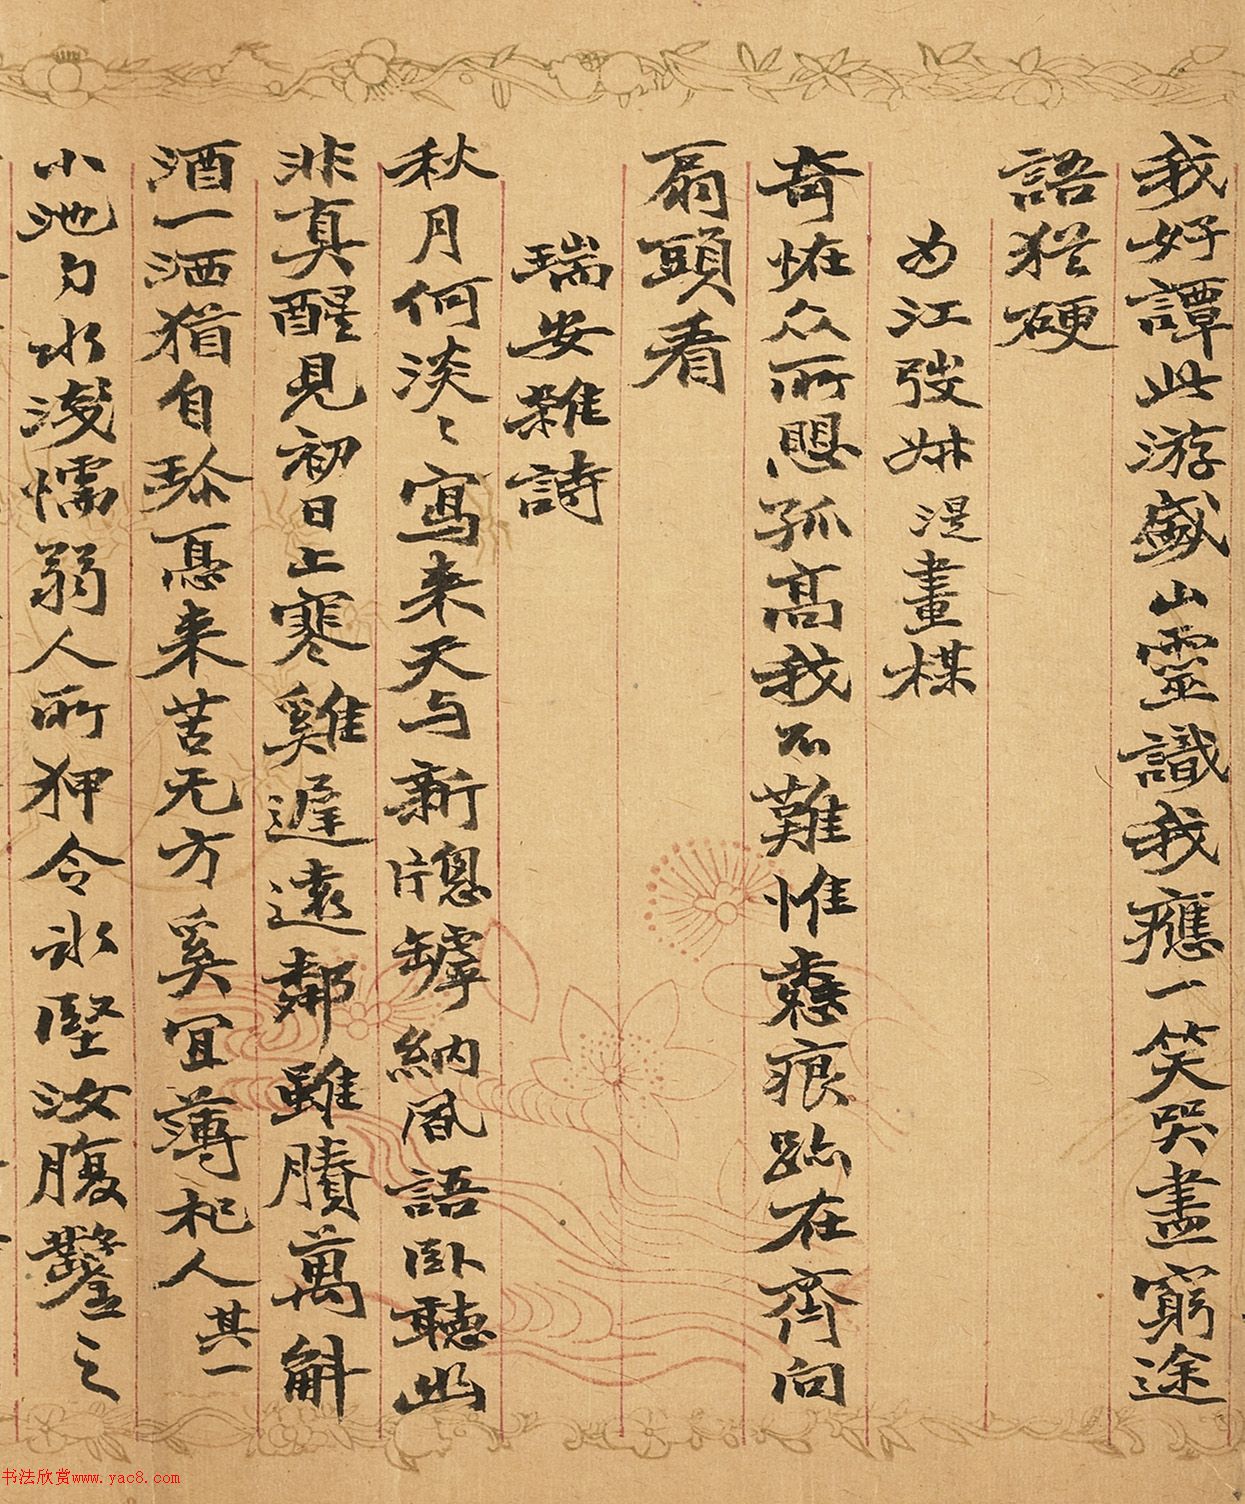 我好譚此游盛山靈識我癮一笑哭盡窮途
語猶硬
為江弢叔湜畫楳
奇恠众所愳孤高我不難惟愁痕跡在齊向
扇頭看
瑞安雜詩
秋月何淡〻寫来天与新牕罅納風語卧聽此
非真醒見初日上寒雞遲遠鄰雖賸萬斛
酒一洒猶自珎憂来苦无方奚宜薄杞人其一
小池勺水淺懦弱人所狎令冰堅汝腹鑿之
书法欣赏www.yac8.com